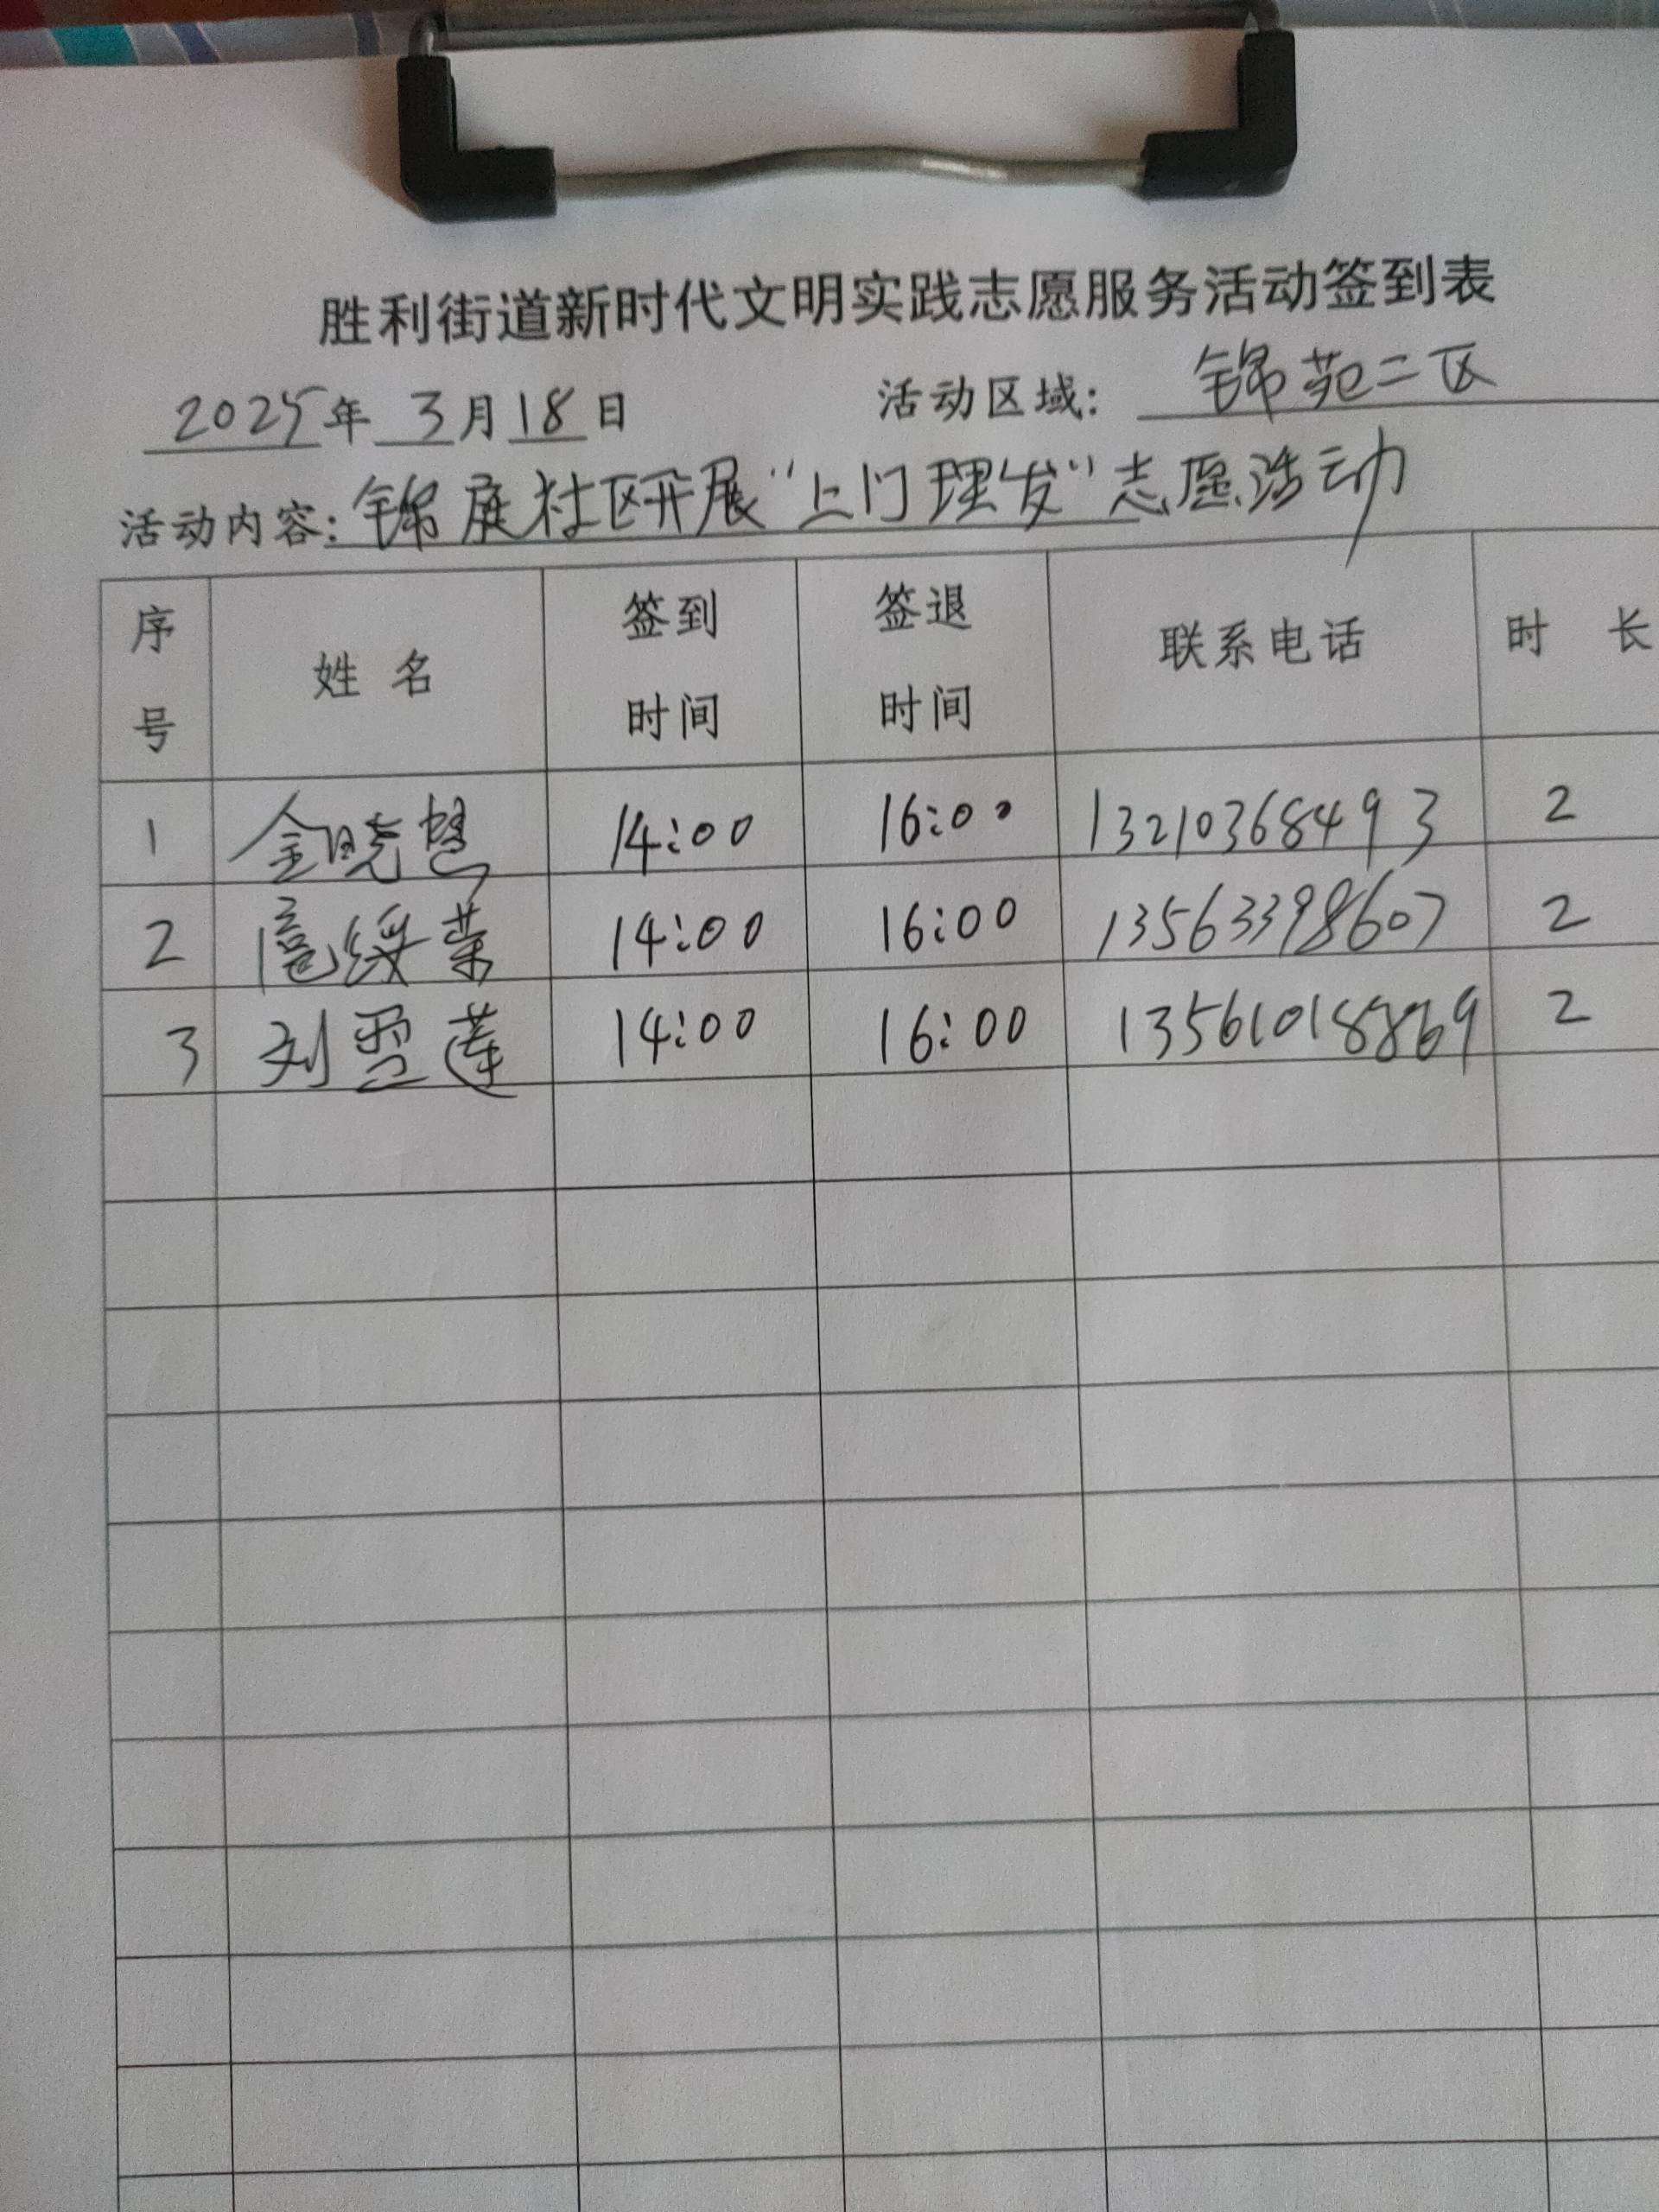 胜利街道新时代文明实践志愿服务活动签到表
2025年 3月18日 活动区域: 锦苑二区
活动内容: 锦庭社区开展“上门理发”志愿活动
序号 姓名 签到时间 签退时间 联系电话 时长
1 金晓慧 14:00 16:00 13210368493 2
2 高绶荣 14:00 16:00 13563398607 2
3 刘雪莲 14:00 16:00 13561018869 2